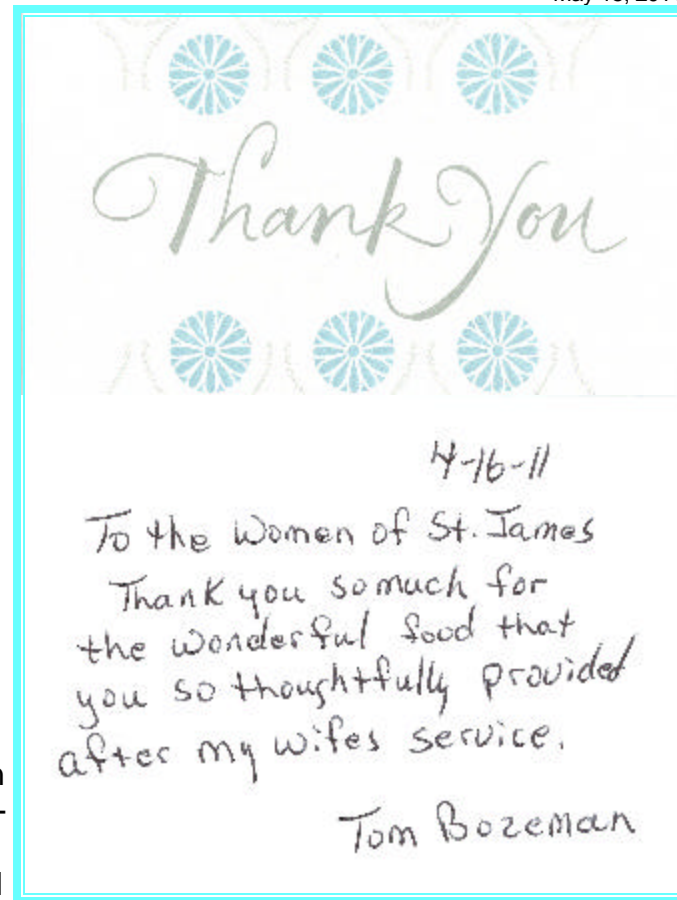 Thank You
4-16-11
To the Women of St. James
Thank you so much for
the wonderful food that
you so thoughtfully provided
after my wifes service.
Tom Bozeman